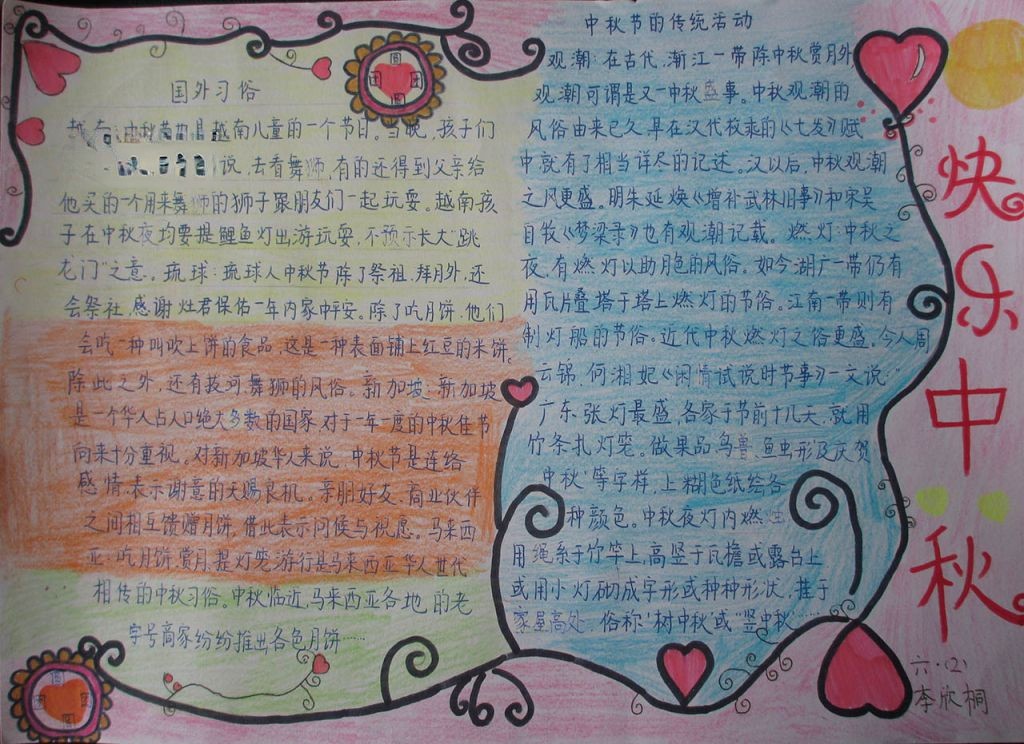 国外习俗
越南儿童的一个节日。当晚,孩子们
说,去看舞师,有的还得到父亲给
他买的一个用来舞师的狮子跟朋友们一起玩耍。越南孩
子在中秋夜均要提鲤鱼灯出游玩耍,不预示长大"跳
龙门"之意。琉球:琉球人中秋节除了祭祖,拜月外,还
会祭社,感谢灶君保佑一年内家中平安。除了吃月饼,他们
会吃一种叫吹上饼的食品,这是一种表面铺上红豆的米饼。
除此之外,还有拔河舞狮的风俗。新加坡:新加坡
是一个华人占人口绝大多数的国家,对于一年一度的中秋佳节
向来十分重视。对新加坡华人来说,中秋节是连络
感情,表示谢意的天赐良机。亲朋好友,商业伙伴
之间相互馈赠月饼,借此表示问候与祝愿。马来西
亚:吃月饼,赏月,提灯笼游行是马来西亚华人世代
相传的中秋习俗。中秋临近,马来西亚各地的老
字号商家纷纷推出各色月饼……
中秋节的传统活动
观潮:在古代,浙江一带除中秋赏月外
观潮可谓是又一中秋盛事。中秋观潮的
风俗由来已久,早在汉代枚乘的《七发》赋
中就有了相当详尽的记述。汉以后,中秋观潮
之风更盛。明朱延焕《增补武林旧事》和宋吴
自牧《梦梁录》也有观潮记载。燃灯:中秋之
夜,有燃灯以助月色的风俗。如今湖广一带仍有
用瓦片叠塔于塔上燃灯的节俗。江南一带则有
制灯船的节俗。近代中秋燃灯之俗更盛。今人周
云锦,何湘妃《闲情试说时节事》一文说:"
广东张灯最盛,各家于节前十几天,就用
竹条扎灯笼。做果品,鸟兽,鱼虫形及庆贺
中秋'等字样,上糊色纸绘各
种颜色。中秋夜灯内燃烛
用绳系于竹竿上,高竖于瓦檐或露台上
或用小灯砌成字形或种种形状,挂于
家屋高处,俗称'树中秋'或"竖中秋……
快乐中秋
六·(2)
李欣桐